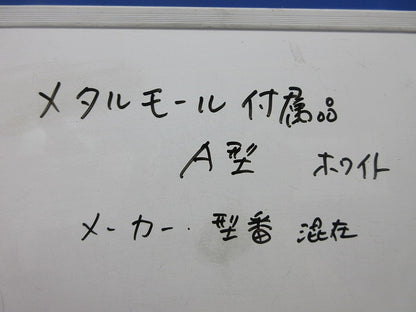 メタルモール 付属品
A型 ホワイト
メーカー・型番 混在